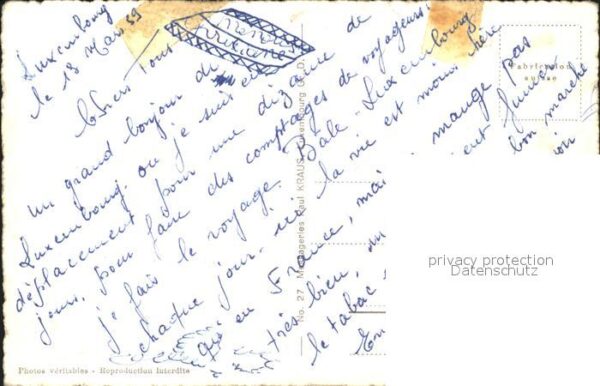 Luxembourg
le 18 Mars 59
Chers Tous
Un grand bonjour du
Luxembourg où je suis en
déplacement pour une dizaine de
jours, pour faire des comptages de voyageurs
je fais le voyage Bâle-Luxembourg
chaque jour. ici la vie est moins chère
qu'en France, mais mange pas
très bien, du
le tabac bon marché
En
Fabrication
suisse
No. 27 Messageries Paul KRAUS, Luxembourg G. D.
Photos véritables - Reproduction interdite
privacy protection
Datenschutz